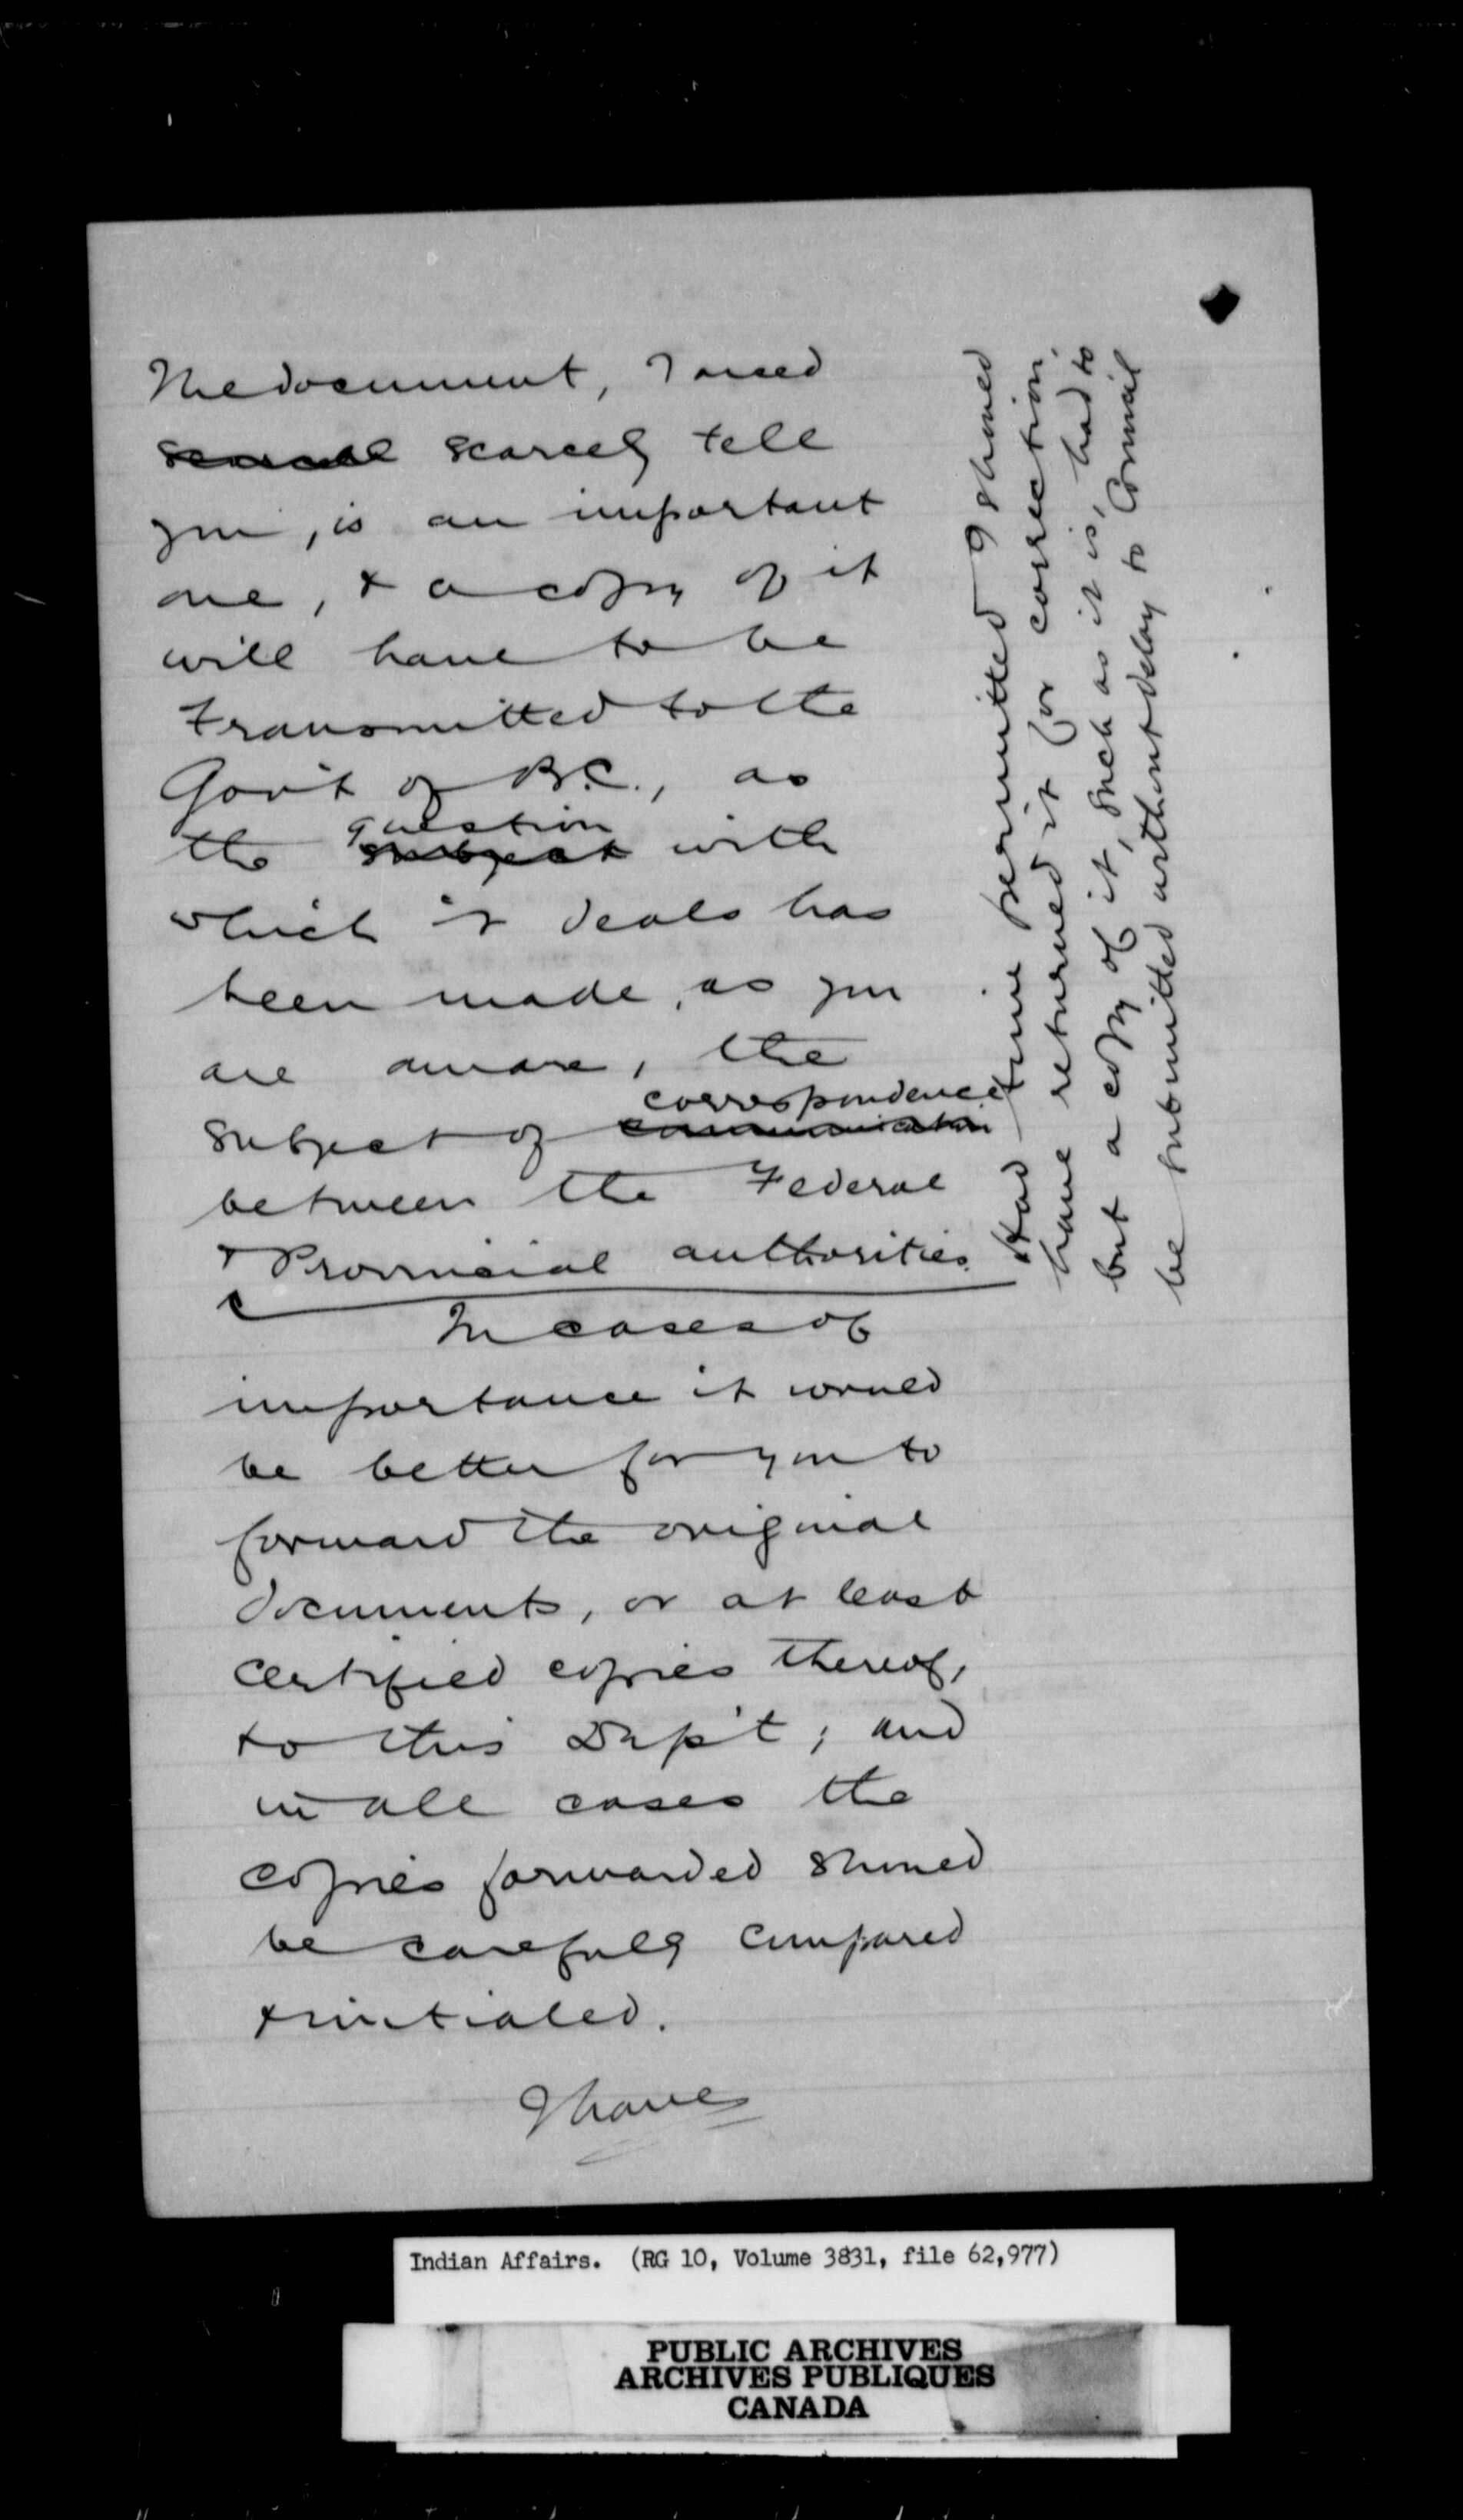 The document, I need
scarcel scarcely tell
you, is an important
one, & a copy of it
will have to be
transmitted to the
Gov't of B.C., as
question
the subject with
which it deals has
been made, as you
are aware, the
correspondence
subject of communication
between the Federal
& Provincial authorities.
In cases of
importance it would
be better for you to
forward the original
documents, or at least
certified copies thereof,
to this Dep't; and
in all cases the
copies forwarded should
be carefully compared
& initialed.
I have
Had time permitted I should
have returned it for correction,
but a copy of it, such as it is, had to
be submitted without delay to Council
Indian Affairs. (RG 10, Volume 3831, file 62,977)
PUBLIC ARCHIVES
ARCHIVES PUBLIQUES
CANADA